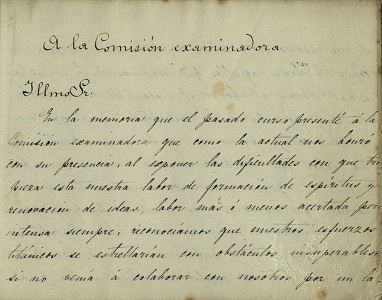 A la Comisión examinadora
Illmo Sr.
En la memoria que el pasado curso presenté á la
Comisión examinadora que como la actual nos honró
con su presencia, al exponer las dificultades con que tro
pieza esta nuestra labor de formación de espíritus y
renovación de ideas, labor más ó menos acertada pero
intensa siempre, reconocíamos que nuestros esfuerzos
titánicos se estrellarían con obstáculos insuperables
si no venía á colaborar con nosotros por un la